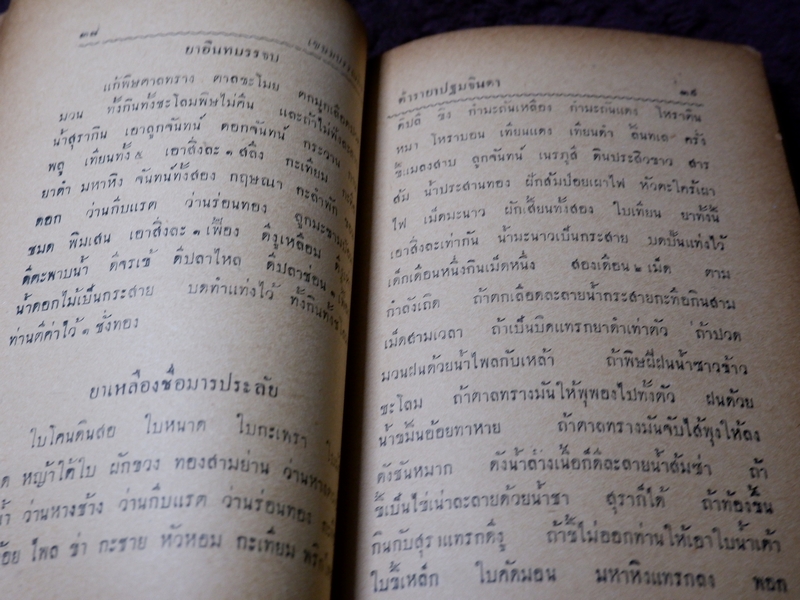 ๓๘
ยาอินทบรรจบ
แก้พิษตาลทราง ตาลขะโมย ตกมูกเลือด
มวน ทั้งกินทั้งชะโลมพิษไม่คืน และถ้าไม่
น้ำสุรากิน เอาลูกจันทน์ ดอกจันทน์ กระวาน
พลู เทียนทั้ง ๕ เอาสิ่งละ ๑ สลึง กะเทียม
ยาดำ มหาหิง จันทน์ทั้งสอง กฤษณา กะลำพัก
ดอก ว่านกีบแรด ว่านร่อนทอง ลูกมะขามป้อม
ชมด พิมเสน เอาสิ่งละ ๑ เฟื้อง ดีงูเหลือม
ดีตะพาบน้ำ ดีจรเข้ ดีปลาไหล ดีปลาช่อน
น้ำดอกไม้เป็นกระสาย บดทำแท่งไว้ ทั้งกินทั้งชะโลม
ท่านตีค่าไว้ ๑ ชั่งทอง
ยาเหลืองชื่อมารประลัย
ใบโคนดินสอ ใบหนาด ใบกะเพรา
หญ้าใต้ใบ ผักขวง ทองสามย่าน
ว่านหางช้าง ว่านกีบแรด ว่านร่อนทอง
ไพล ข่า กะชาย หัวหอม กะเทียม
ตำรายาปฐมจินดา ๓๙
ดีปลี ขิง กำมะถันเหลือง กำมะถันแดง โหราตีน
หมา โหราบอน เทียนแดง เทียนดำ ลิ้นทเล ครั่ง
ขี้แมลงสาบ ลูกจันทน์ เนรภูสี ดินประสิวขาว สาร
ส้ม น้ำประสานทอง ผักส้มป่อยเผาไฟ หัวตะไคร้เผา
ไฟ เม็ดมะนาว ผักเสี้ยนทั้งสอง ใบเทียน ยาทั้งนี้
เอาสิ่งละเท่ากัน น้ำมะนาวเป็นกระสาย บดปั้นแท่งไว้
เด็กเดือนหนึ่งกินเม็ดหนึ่ง สองเดือน ๒ เม็ด ตาม
กำลังเถิด ถ้าตกเลือดละลายน้ำกระสายกะทือกินสาม
เม็ดสามเวลา ถ้าเป็นบิดแทรกยาดำเท่าตัว ถ้าปวด
มวนฝนด้วยน้ำไพลกับเหล้า ถ้าพิษฝีฝนน้ำซาวข้าว
ชะโลม ถ้าตาลทรางมันให้พุพองไปทั้งตัว ฝนด้วย
น้ำขมิ้นอ้อยทาหาย ถ้าตาลทรางมันจับไส้พุงให้ลง
ดังชันหมาก ดังน้ำล่างเนื้อก็ดีละลายน้ำส้มซ่า ถ้า
ขี้เป็นไข่เน่าละลายด้วยน้ำชา สุราก็ได้ ถ้าท้องขึ้น
กินกับสุราแทรกดีงู ถ้าขี้ไม่ออกท่านให้เอาใบน้ำเต้า
ใบขี้เหล็ก ใบคัดมอน มหาหิงแทรกลง พอก